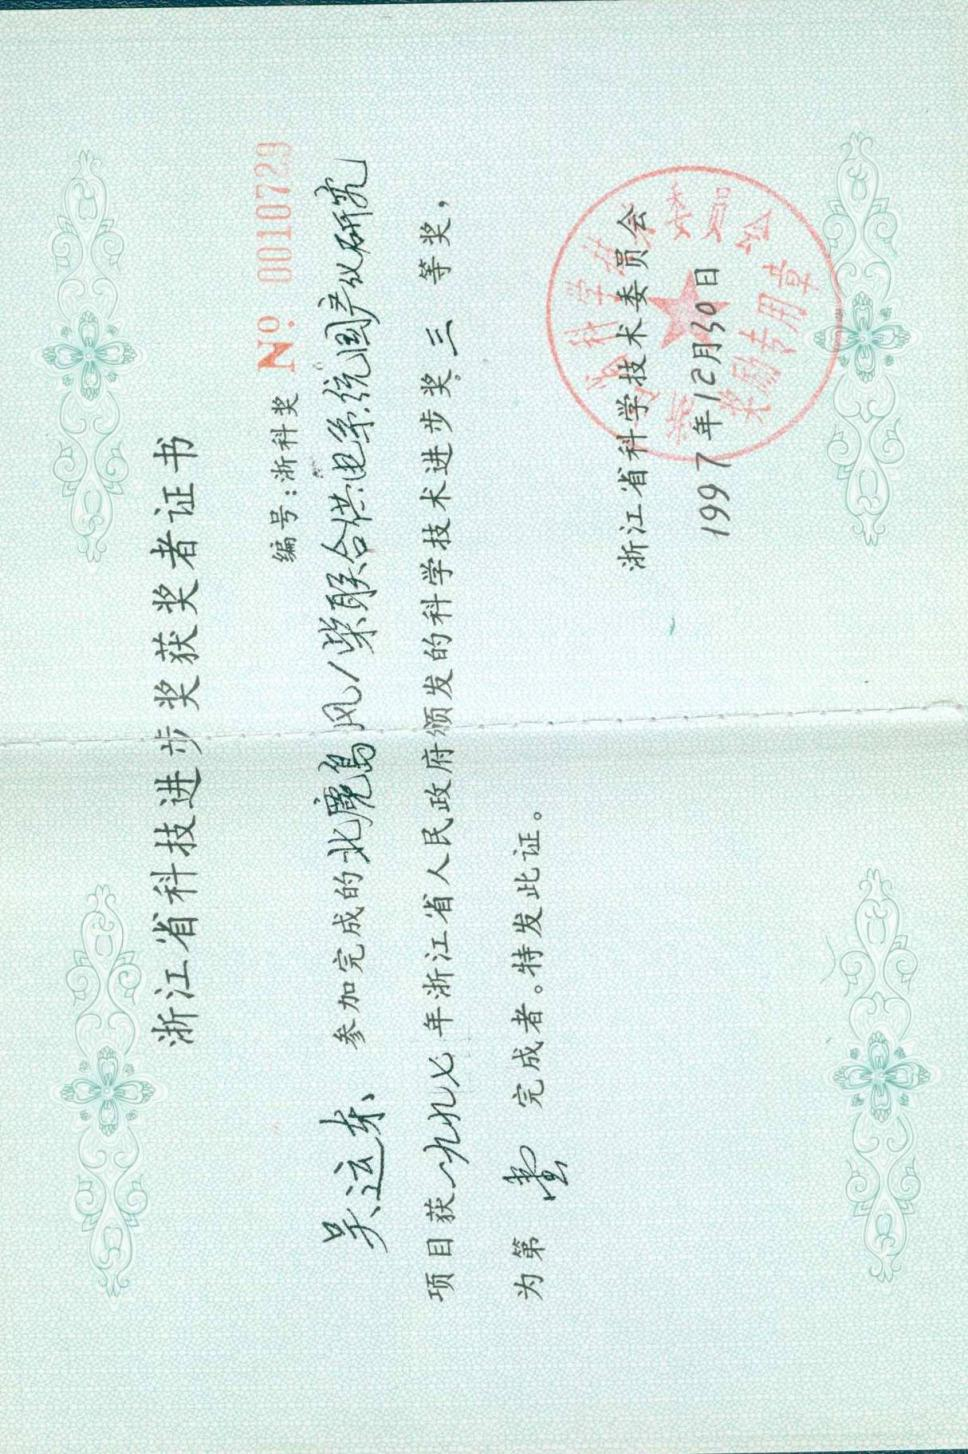 浙江省科技进步奖获奖者证书
编号:浙科奖 №. 0010729
吴运东 参加完成的北麂岛风/柴联合供电系统国产化研究
项目获一九九七年浙江省人民政府颁发的科学技术进步奖三等奖,
为第壹完成者。特发此证。
浙江省科学技术委员会
1997年12月30日
浙江省科学技术委员会
奖励专用章